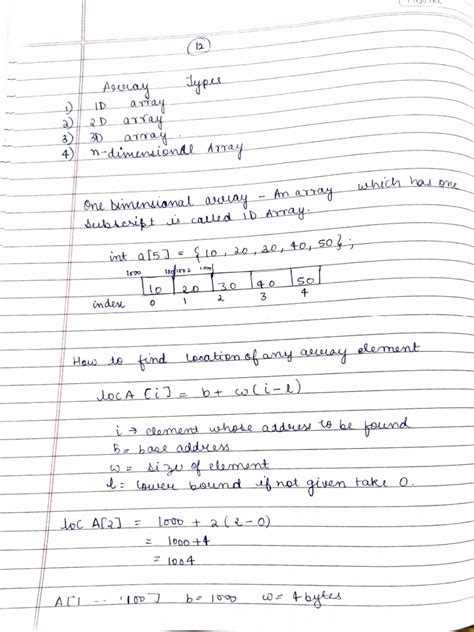 12
Array Types
1) 1D array
2) 2D array
3) 3D array
4) n-dimensional Array
One Dimensional array - An array which has one
subscript is called 1D Array.
int a[5] = {10, 20, 30, 40, 50};
1000
10 20 30 40 50
index 0 1 2 3 4
How to find location of any array element
loc A [i] = b + w(i-l)
i → element whose address to be found
B = base address
w = size of element
l = lower bound if not given take 0.
loc A[2] = 1000 + 2(2-0)
= 1000+4
= 1004
A[1 ... 100] b = 1000 w = 4 bytes